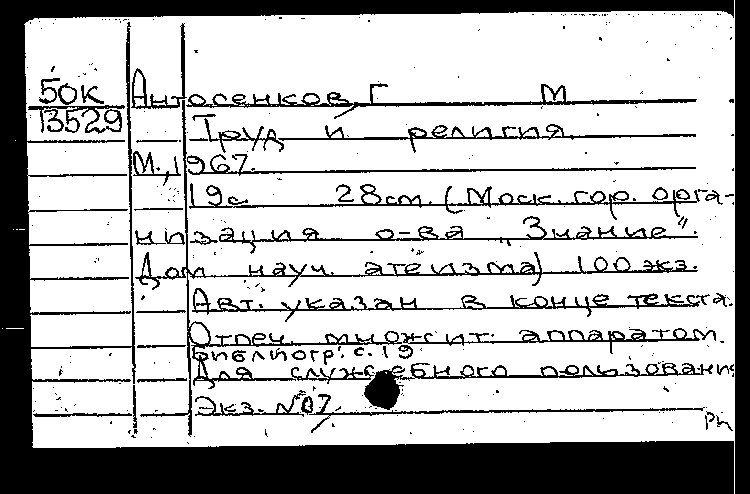 50к Антосенков, Г М
13529 Труд и религия.
М., 1967.
19с 28см. (Моск. гор. орга-
низация о-ва „Знание".
Дом науч. атеизма) 100 экз.
Авт. указан в конце текста.
Отпеч. множит. аппаратом.
Библиогр: с. 19
Для служебного пользования
Экз. №07